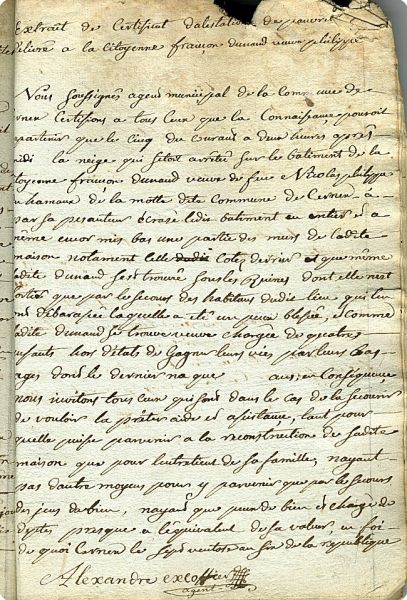 Extrait de Certificat dalestation de pauvreté
delivré a la Citoyenne françon Dunand veuve philippe
Nous Soussignés agent municipal de la Commune de
Cernex Certifions a tous ceux que la Connaissance pouroit
apartenir que le Cinq du Courant a deux heures après
midi la neige qui s'étoit arrêtée sur le batiment de la
citoyenne françon Dunand veuve de feu Nicolas philippe
du hameau de la motte dite Commune de Cernex a
par sa pesanteur écrasé ledit batiment en entier et a
même encor mis bas une partie des murs de ladite
maison notament Cotez derrier et que même
ladite Dunand s'est trouvé sous les Ruines dont elle n'est
sortie que par le secours des habitans dudit lieu qui
débarassée laquelle a eté un peux blessée, Comme
ladite Dunand se trouve veuve chargée de quatres
enfants hors d'états de Gagner leurs vies par leurs bas
ages dont le dernier na que ans, en Consequence
nous invitons tous ceux qui sont dans le cas de la secourir
de vouloir la prêter aide et asistance, tant pour
quelle puise parvenir a la reconstruction de sadite
maison que pour l'entretient de sa famille, nayant
pas dautre moyens pour y parvenir que par le secours
des gens de bien, nayant que peux de bien et chargé de
dettes presque a l'équivalent de sa valeur, en foi
de quoi Cernex le Sept ventose an six de la république
Alexandre excoffier
agent